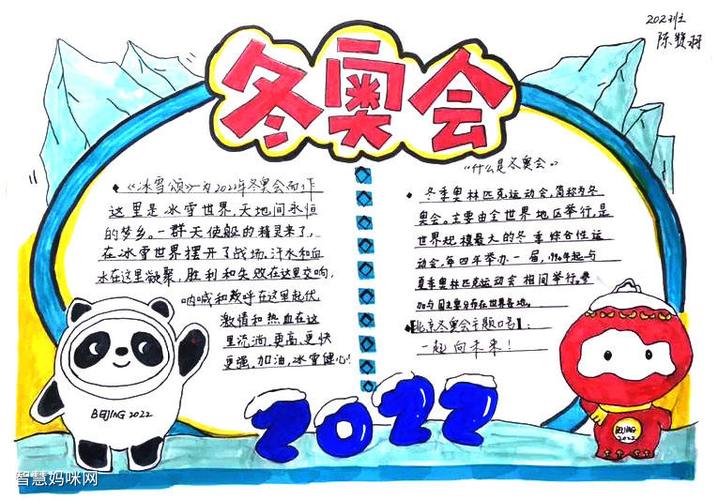 202班
陈赞羽
冬奥会
《冰雪颂》为2022年冬奥会而作
这里是冰雪世界,天地间永恒
的梦乡。一群天使般的精灵来了,
在冰雪世界摆开了战场,汗水和血
水在这里凝聚,胜利和失败在这里交响,
呐喊和欢呼在这里起伏
激情和热血在这
里流淌,更高,更快
更强,加油,冰雪健儿!
"什么是冬奥会。"
冬季奥林匹克运动会,简称为冬
奥会。主要由全世界地区举行,是
世界规模最大的冬季综合性运
动会,每四年举办一届,1994年起与
夏季奥林匹克运动会相间举行。参
加与国主要分布在世界各地。
【北京冬奥会主题口号】:
一起向未来!
BEIJING 2022
2022
BEIJING
2022
智慧妈咪网